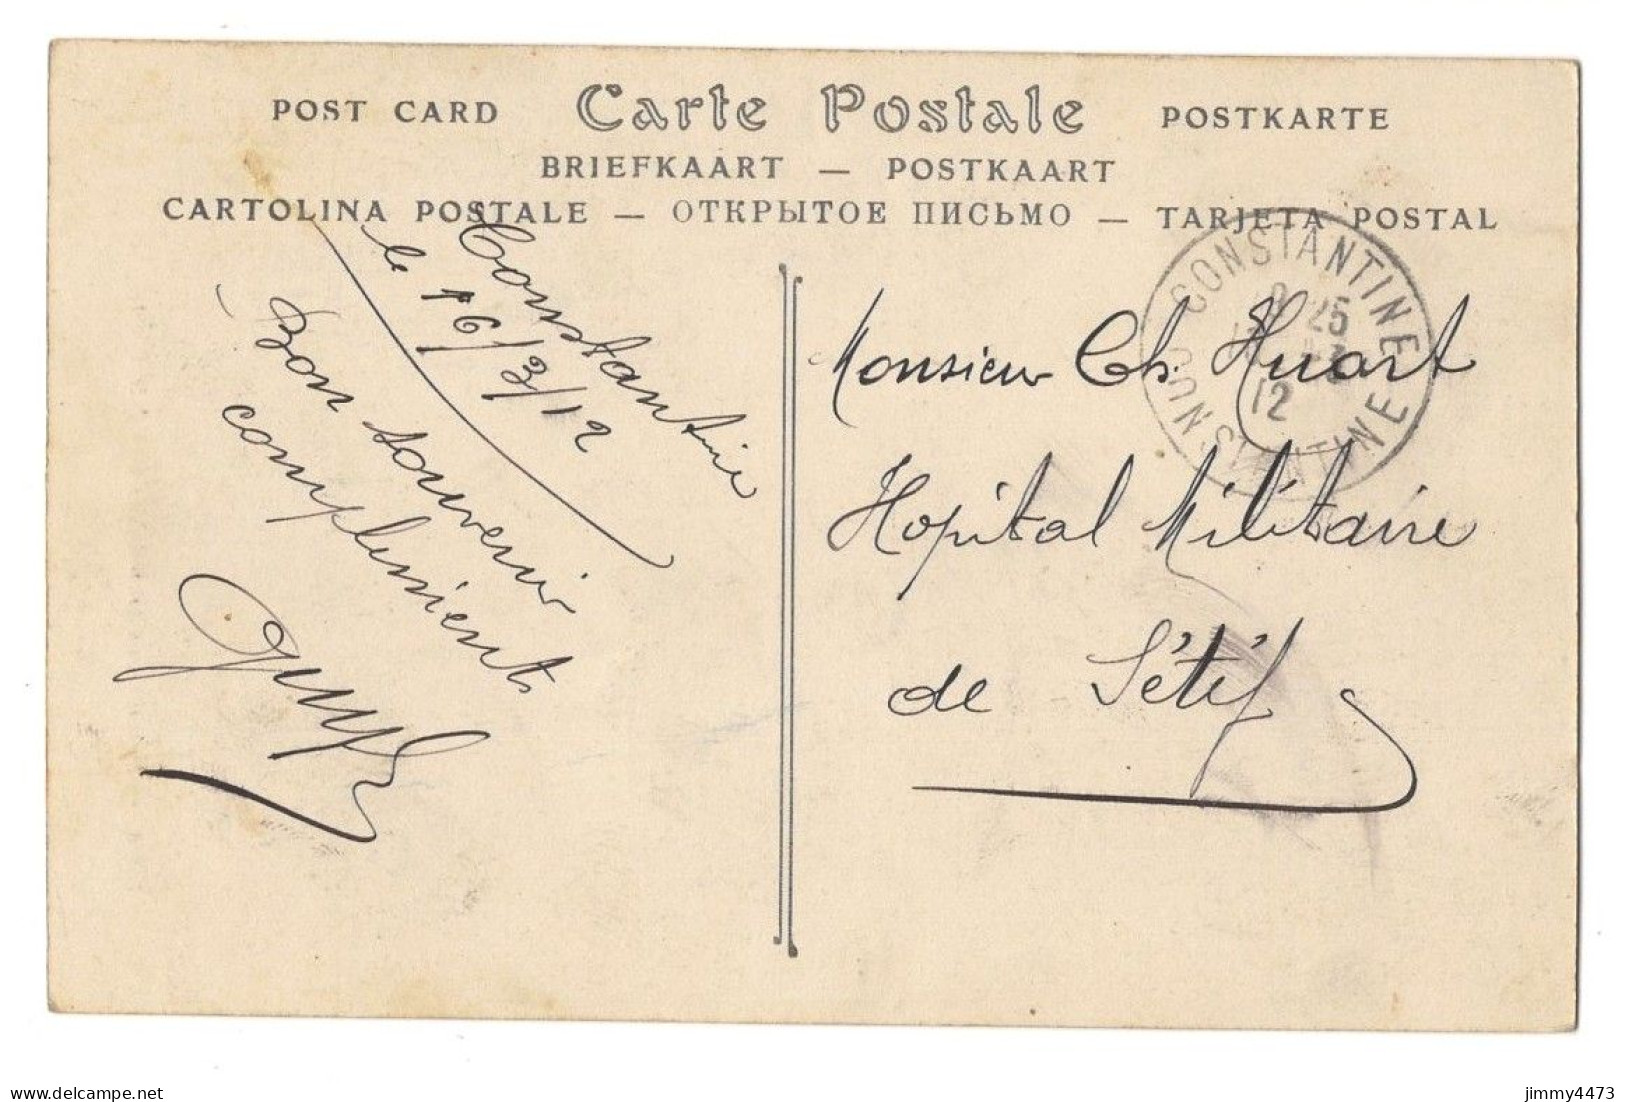 POST CARD Carte Postale POSTKARTE
BRIEFKAART — POSTKAART
CARTOLINA POSTALE — ОТКРЫТОЕ ПИСЬМО — TARJETA POSTAL
Constantine
le 16/3/12
Bon souvenir
compliments
CONSTANTINE
25
12
CONSTANTINE
Monsieur Ch. Huart
Hopital Militaire
de Sétif
delcampe.net
jimmy4473